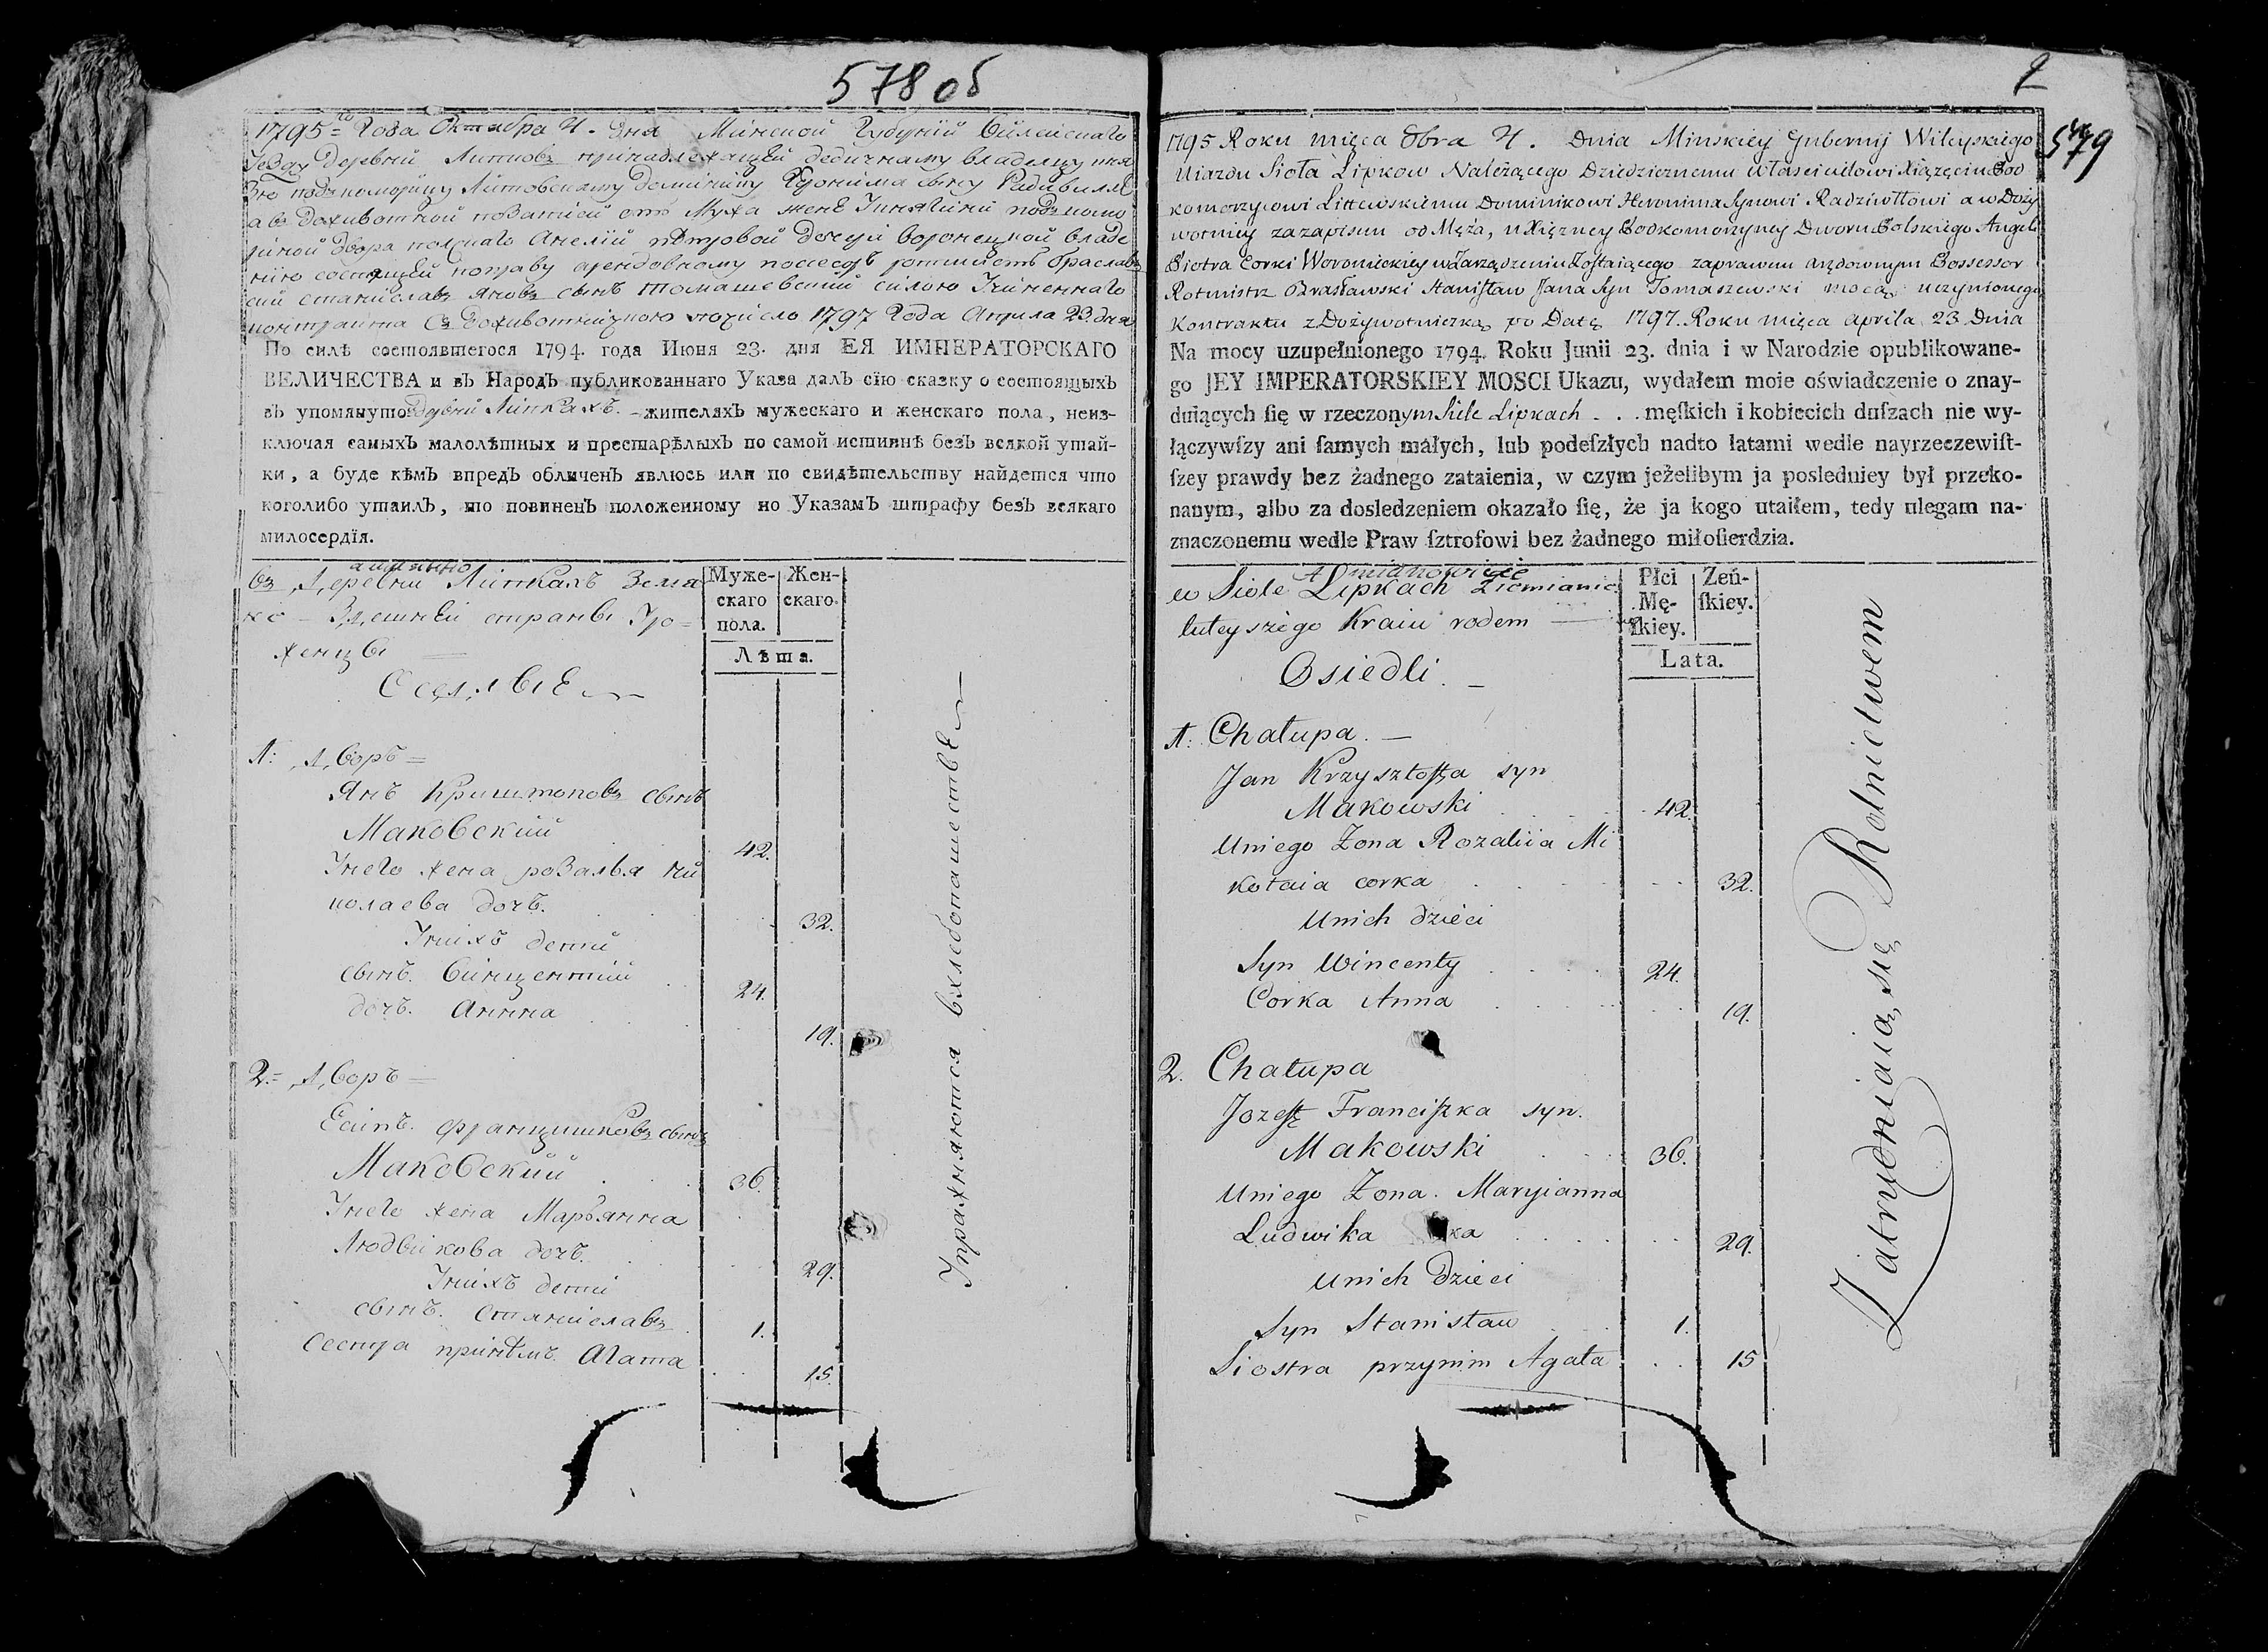 578 об
1795=го Года Октября 4. дня Минской Губернии Вилейскаго
уезду Деревни Липковъ принадлежащей дедичному владельцу кня
зю подкоморжиу Литовскому Доминику Геронима сыну Радивиллу
а въ доживотной податпей отъ Мужа жене Княгини подкомо
ржиной двора полскаго Анелии петровой дочери воронецкой владе
нию состоящей по праву арендовному поссесоръ ротмистръ браслав
ский станиславъ яновъ сынъ томашевский силою Учиненнаго
контракта съ доживотницкою по число 1797 Года Априла 23. дня
По силѣ состоявшегося 1794. года Июня 23. дня ЕЯ ИМПЕРАТОРСКАГО
ВЕЛИЧЕСТВА и въ Народъ публикованнаго Указа далъ сїю сказку о состоящыхъ
въ упомянутой дервни Липкахъ. – жителяхъ мужескаго и женскаго пола, неиз-
ключая самыхъ малолѣтных и престарѣлыхъ по самой истиннѣ безъ всякой утай-
ки, а буде кѣмъ впредъ обличенъ явлюсь или по свидѣтельству найдется что
коголибо утаилъ, то повиненъ положенному по Указамъ штрафу безъ всякаго
милосердїя.
а имянно
въ Деревни Липкахъ земя
не – Здешней страны Уро=
женцы
Оседлые
Муже-
скаго
пола.
Жен-
скаго.
Лѣта.
1: Дворъ =
Янъ Криштоповъ сынъ
Маковский 42.
У него жена розалья ми
колаева дочь. 32.
У нихъ дети
сынъ. Винцентий 24.
дочь. Анна 19.
2.= Дворъ =
Есипъ. францишковъ сынъ
Маковский 36.
У него жена Марьянна
Людвикова дочь. 29.
У нихъ дети
сынъ. Станиславъ 1.
Сестра приемъ. Агата 15.
Упражняются в хлебопашестве
2
579
1795 Roku mięca 8bra 4. Dnia Minskiey Gubernij Wileyskiego
Ujazdu Sioła Lipkow Należącego Dziedzicznemu Włascicielowi Xiążęciu Pod
komorzyiowi Littewskiemu Dominikowi Heronima Synowi Radziwiłłowi a w Doży
wotniey za zapisem od Męża, u Xiężney Podkomorzyney Dworu Polskiego Angeli
Piotra Corki Woronieckiey w Zarządzeniu Zostaiącego za prawem Arędownym Possessor
Rotmistrz Brasławski Stanisław Jana Syn Tomaszewski mocą uczynionego
Kontraktu z Dożywotniczką po Datę 1797. Roku mięca Aprila 23 Dnia
Na mocy uzupełnionego 1794. Roku Junii 23. dnia i w Narodzie opublikowane-
go JEY IMPERATORSKIEY MOSCI Ukazu, wydałem moie oświadczenie o znay-
duiących ſię w rzeczonym Siele Lipkach . . . męſkich i kobiecich duſzach nie wy-
łączywſzy ani ſamych małych, lub podeſzłych nadto latami wedle nayrzeczewiſt-
ſzey prawdy bez żadnego zataienia, w czym jeżelibym ja posledniey był przeko-
nanym, albo za dosledzeniem okazało ſię, że ja kogo utaiłem, tedy ulegam na-
znaczonemu wedle Praw ſztrofowi bez żadnego miłoſierdzia.
A mianowicie
w Siole Lipkach Ziemianie
tuteyszego Kraiu rodem
Osiedli.
Płci
Mę-
ſkiey.
Żeń-
ſkiey.
Lata.
1: Chałupa. –
Jan Krzysztofa syn
Makowski 42.
U niego Żona Rozaliia Mi
kołaia corka 32.
U nich dzieci
Syn Wincenty 24.
Corka Anna 19.
2. Chałupa
Jozef Franciſzka syn.
Makowski 36.
U niego Żona. Maryianna
Ludwika ka 29.
U nich Dzieci
Syn Stanisław 1.
Siostra przynim Agata 15
Zatrudniaią się Rolnictwem